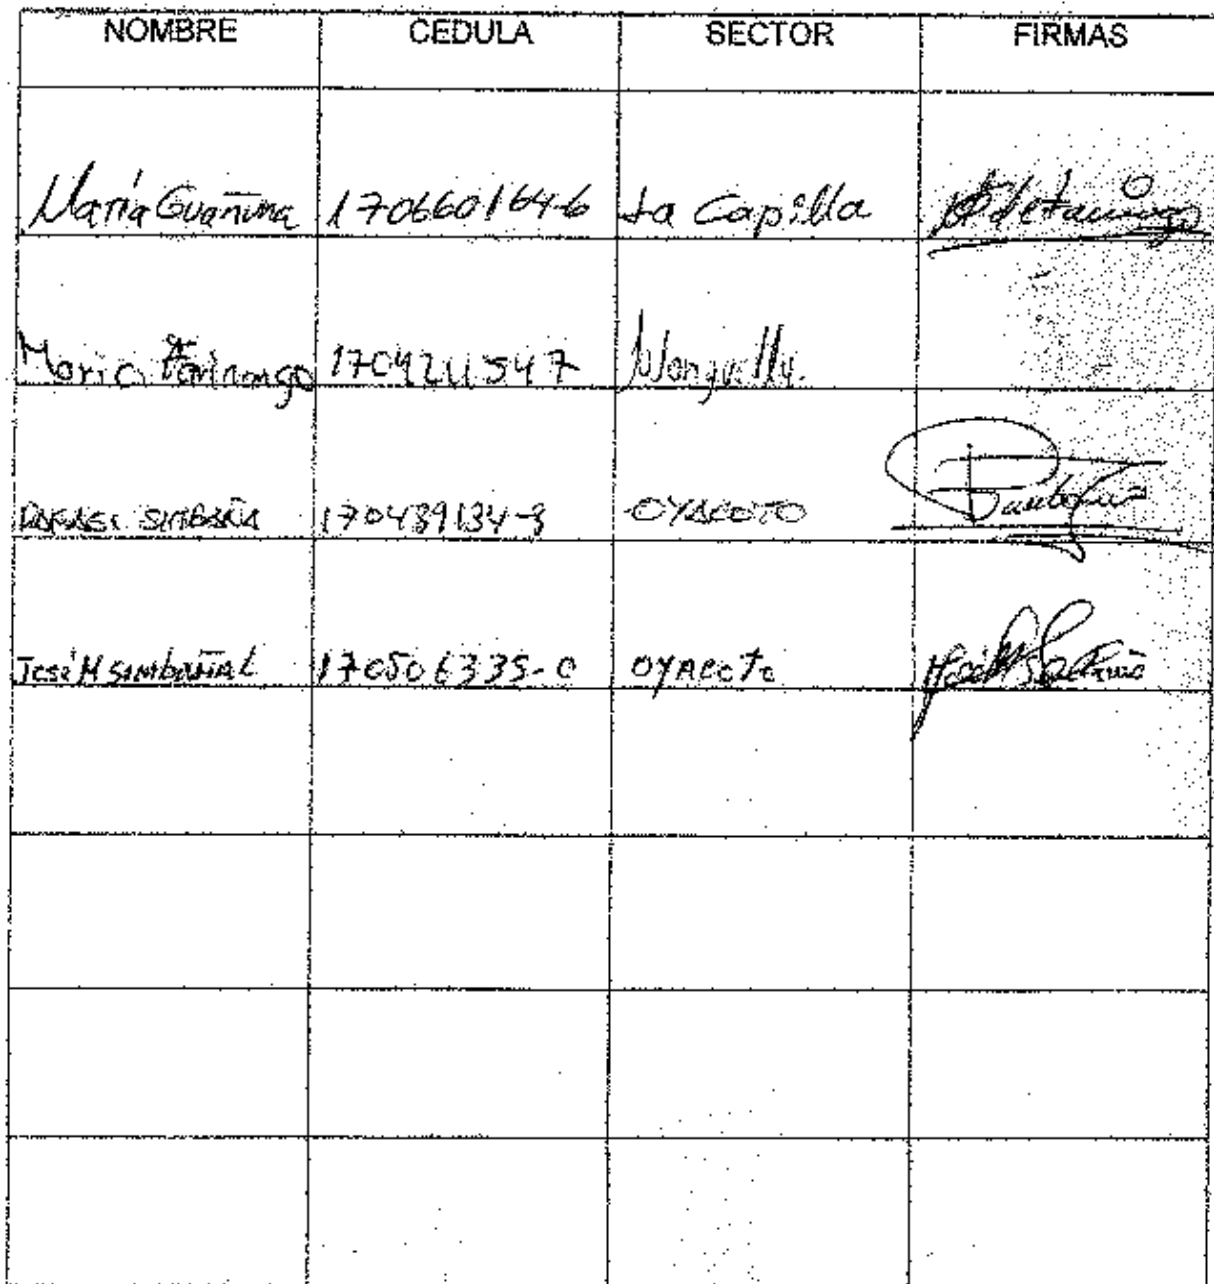 NOMBRE CEDULA SECTOR FIRMAS
María Guañuna 170660164-6 La Capilla
Maria Farinango 1704211547
RAFAEL SIMBAÑA 170489134-8 OYACOTO
José M SIMBAÑA L 170506335-0 OYACOTO